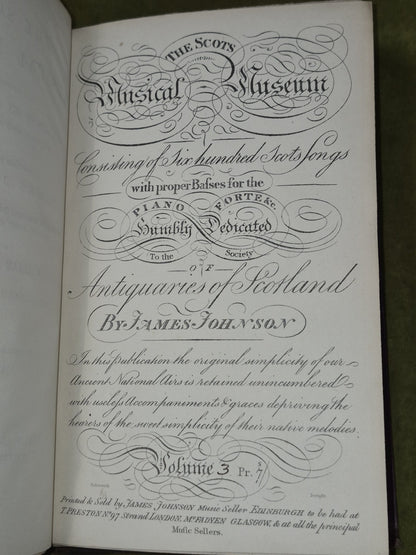 THE SCOTS
Musical Museum
Consisting of Six hundred Scots Songs
with proper Baſses for the
PIANO FORTE &c.
Humbly Dedicated
To the Society
OF
Antiquaries of Scotland
By JAMES JOHNSON
In this publication the original simplicity of our
Ancient National Airs is retained unincumbered
with useleſs Accompaniments & graces depriving the
hearers of the sweet simplicity of their native melodies.
Volume 3 Pr. 7/s
Printed & Sold by JAMES JOHNSON Music Seller EDINBURGH to be had at
T. PRESTON No. 97 Strand LONDON, Mc. FADYEN GLASGOW, & at all the principal
Muſic Sellers.